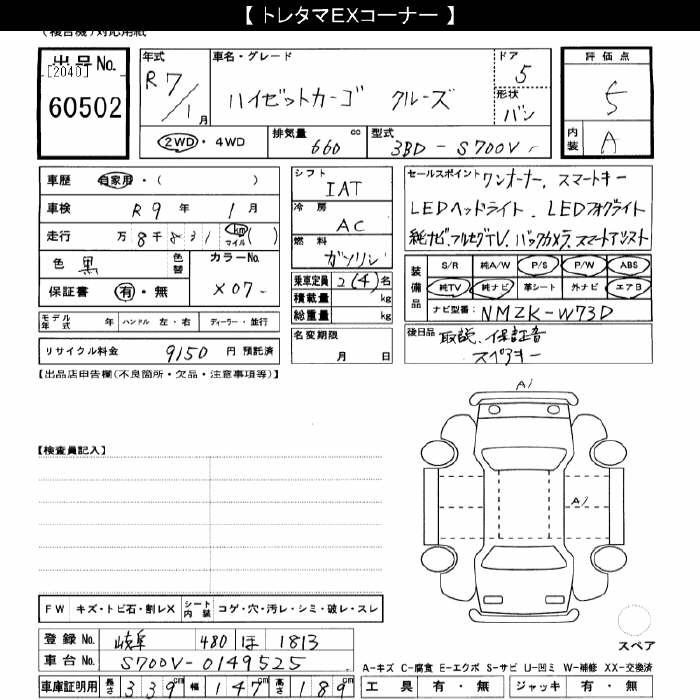 【 トレタマEXコーナー 】
(複合機)対応用紙
出品No.
[2040]
60502
年式
R7/1月
車名・グレード
ハイゼットカーゴ クルーズ
ドア
5
形状
バン
評価点
5
内装
A
2WD・4WD
排気量 660 cc
型式 3BD-S700V
車歴 自家用・( )
車検 R9年 1月
走行 万8千831 km マイル ( )
色 黒
色替
カラーNo.
X07-
保証書 有・無
モデル年式 年 ハンドル 左・右 ディーラー・並行
リサイクル料金 9150 円 預託済
シフト
IAT
冷房
AC
燃料
ガソリン
乗車定員 2(4)名
積載量 kg
総重量 kg
名変期限
月 日
セールスポイント ワンオーナー、スマートキー
LEDヘッドライト、LEDフォグライト
純ナビ、フルセグTV、バックカメラ、スマートアシスト
装備品
S/R 純A/W P/S P/W ABS
純TV 純ナビ 革シート 外ナビ エアB
ナビ型番: NMZK-W73D
後日品 取説、保証書
スペアキー
【出品店申告欄(不良箇所・欠品・注意事項等)】
【検査員記入】
A1
A1
FW キズ・トビ石・割レX シート内装 コゲ・穴・汚レ・シミ・破レ・スレ
登録No. 岐阜 480 ほ 1813
車台No. S700V-0149525
車庫証明用 長さ 339cm 幅 147cm 高さ 189cm
スペア
A-キズ C-腐食 E-エクボ S-サビ U-凹ミ W-補修 XX-交換済
工具 有・無 ジャッキ 有・無